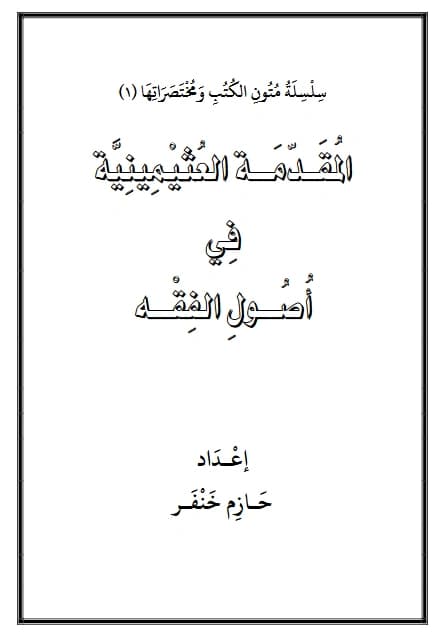 سِلْسِلَةُ مُتُونِ الكُتُبِ وَمُخْتَصَرَاتِهَا (١)
المُقَـدِّمَـة العُثَيْمِينِيَّة
فِي
أُصُـولِ الفِقْـه
إعْـدَاد
حَـازِم خَنْفَـر